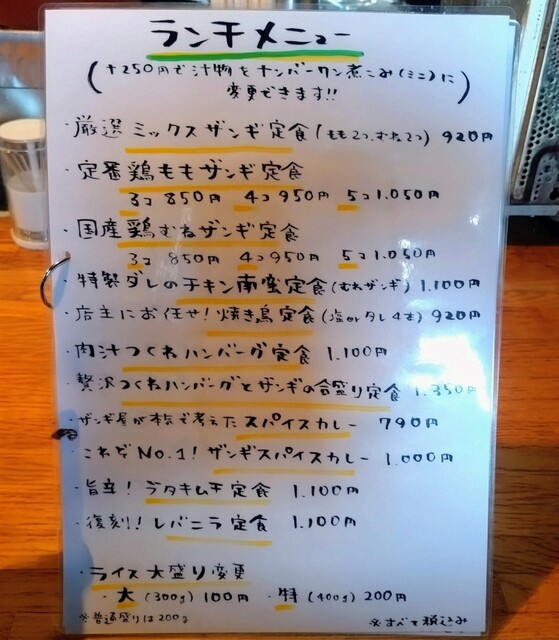 ランチメニュー
(+250円で汁物をナンバーワン煮こみ(ミニ)に
変更できます!!)
・厳選ミックスザンギ定食(もも2つ、むね2つ) 920円
・定番鶏ももザンギ定食
3コ 850円 4コ 950円 5コ 1.050円
・国産鶏むねザンギ定食
3コ 850円 4コ 950円 5コ 1.050円
・特製ダレのチキン南蛮定食(むねザンギ) 1.100円
・店主にお任せ!焼き鳥定食(塩orタレ4本) 920円
・肉汁つくねハンバーグ定食 1.100円
・贅沢つくねハンバーグとザンギの合盛り定食 1.350円
・ザンギ屋が本気で考えたスパイスカレー 790円
・これぞNo.1!ザンギスパイスカレー 1.000円
・旨辛!ブタキムチ定食 1.100円
・復刻!レバニラ定食 1.100円
・ライス大盛り変更
・大(300g) 100円 ・特(400g) 200円
※普通盛りは200g ※すべて税込み